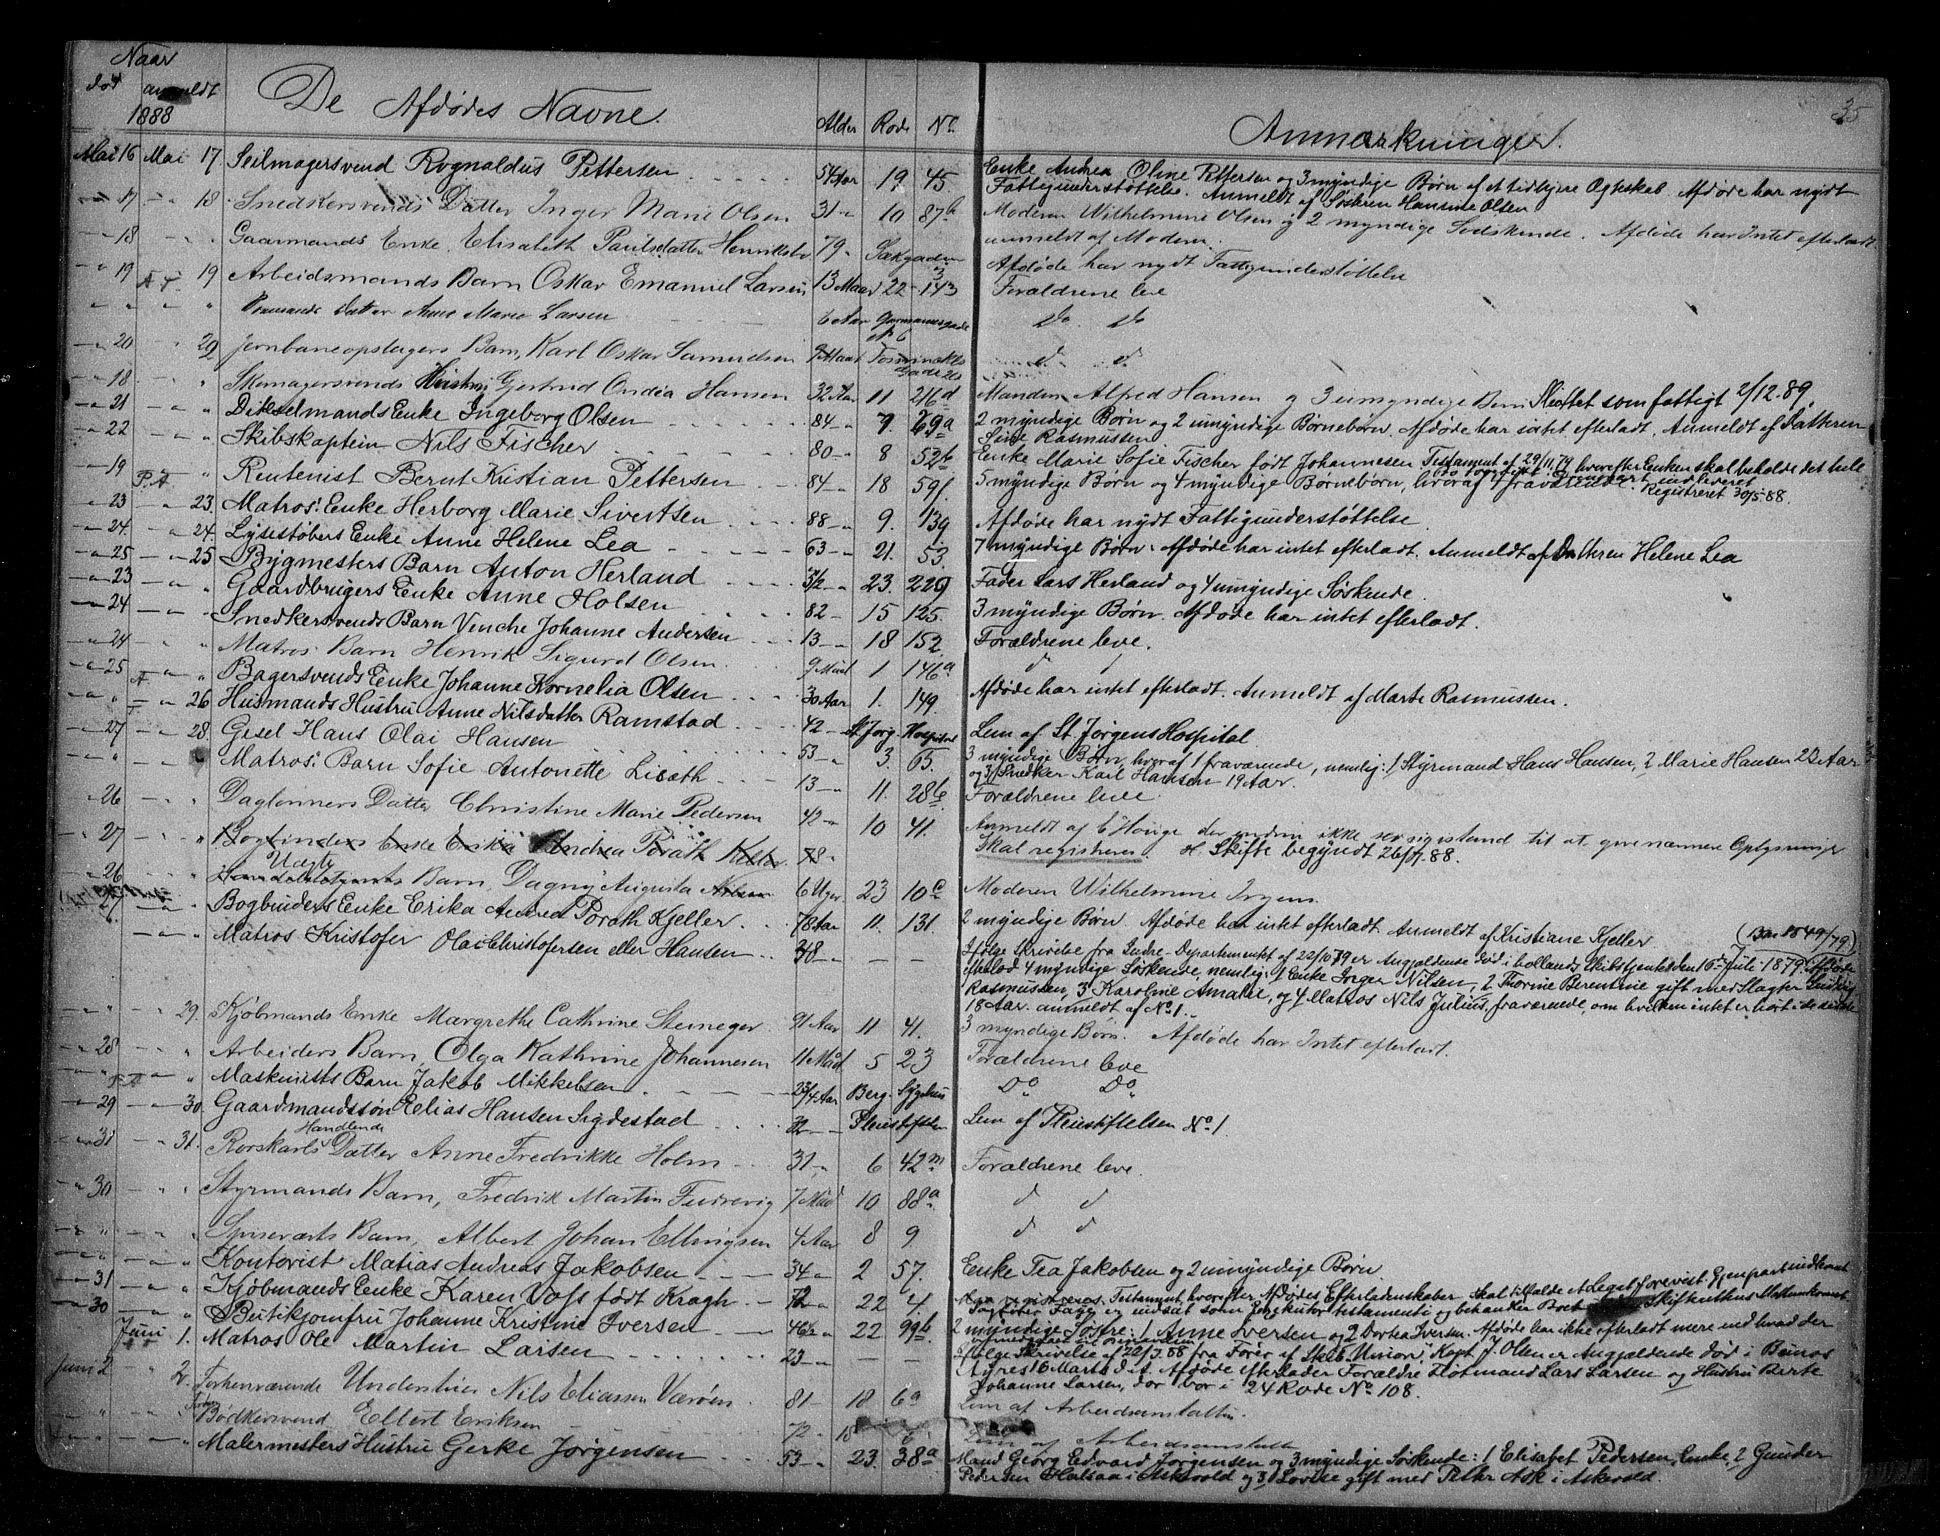 Naar
død anmeldt De Afdødes Navne. Alder Rode No. Anmærkninger. 35
1888
Mai 16 Mai 17 Seilmagersvend Rognaldus Pettersen 54 Aar 19 45. Enke Andrea Oline Pettersen og 3 myndige Børn af et tidligere Ægteskab Afdøde har nydt
Fattigunderstøttelse. Anmeldt af Søsteren Hansine Olsen
17 18 Snedkersvends Datter Inger Marie Olsen 31 10 87b Moderen Wilhelmine Olsen og 2 myndige Sødskende. Afdøde har Intet efterladt.
anmeldt af Moderen.
18 " Gaarmands Enke Elisabeth Paulsdatter 79 Afdøde har nydt Fattigunderstøttelse
19 19 Arbeidsmands Barn Oskar Emanuel Larsen 13 Maar 22 143 Forældrene leve
" " Datter Anne Marie Larsen 6 Aar Do Do
20 20 Jernbaneopslagers Barn, Karl Oskar Samuelsen 9 Maar d d
18 " Skomagersvends Hustru Gjertrud Ondéa Hansen 32 Aar 11 216d Manden Alfred Hansen og 3 umyndige Børn Sluttet som fattigt 2/12.89.
21 " Dikselmands Enke Ingeborg Olsen 84 9 69a 2 myndige Børn og 2 umyndige Børnebørn. Afdøde har intet efterladt. Anmeldt af Datteren
Sine Rasmussen
22 " Skibskaptein Nils Fischer 80 8 52b Enke Marie Sofie Fischer født Johannesen Testament af 29/11.79 hvorefter Enken skal beholde det hele
19 P.A " Rentenist Bernt Kristian Pettersen 84 18 59f. 5 myndige Børn og 4 myndige Børnebørn, hvoraf 1 fraværende. Registreret 30/5.88.
23 23. Matros' Enke Herborg Marie Sivertsen 88 9. 139 Afdøde har nydt Fattigunderstøttelse.
24. 24. Lysestøbers Enke Anne Helene Lea 63 21. 53. 7 myndige Børn. Afdøde har intet efterladt. Anmeldt af Datteren Helene Lea
25 25 Bygmesters Barn Anton Herland 3½ 23. 229 Fader Lars Herland og 4 umyndige Søskende.
23 " Gaardbrugers Enke Anne Holsen 82 15 125. 3 myndige Børn. Afdøde har intet efterladt.
24 " Snedkersvends Barn Venche Johanne Andersen 13 18 152. Forældrene leve.
24 " Matros' Barn Henrik Sigurd Olsen 9 Maar 1 146a d d
25 " Bagersvends Enke Johanne Kornelia Olsen 30 Aar 1. 149. Afdøde har intet efterladt. Anmeldt af Marte Rasmussen.
" 26 Husmands Hustru Anne Nilsdatter Ramstad 42 St Jørg. Hospital Lem af St. Jørgens Hospital.
27 28. Gesel Hans Olai Hansen 53 3 65. 3 myndige Børn, hvoraf 1 fraværende, nemlig: 1 Styrmand Hans Hansen, 2 Marie Hansen 22 Aar
og 3 Snedker Karl Hansen 19 Aar.
" " Matros' Barn Sofie Antonette Lisæth 13 11. 28b Forældrene leve.
26 " Daglønners Datter Christine Marie Pedersen 42 10 41. Anmeldt af E Houge der endnu ikke ser sig istand til at give nærmere Oplysninger
Skal registreres. Skifte begyndt 26/7.88.
27 " Bogbinders Enke Erika Andrea Porath Keller 78
26 " Barn, Dagny Augusta 6 Uger 23 10c Moderen Wilhelmine
27 " Bogbinders Enke Erika Andrea Porath Kjeller 78 Aar 11. 131. 2 myndige Børn. Afdøde har intet efterladt. Anmeldt af Kristiane Kjeller.
" Matros Kristofer Olai Christofersen eller Hansen 38 Ifølge Skrivelse fra Indre-Departementet af 22/10 79 er Angjældende død i hollandsk Skibstjeneste den 16 Juli 1879. Afdøde
efterlod 4 myndige Søskende nemlig: 1 Enke Inger Nilsen, 2 Thorine Berentine gift med Slagter Ludvig
Rasmussen, 3 Karoline Amalie, og 4 Matros Nils Julius, fraværende, om hvilken intet er hørt i de sidste
18 Aar. anmeldt af No 1.
" 29. Kjøbmands Enke Margrethe Cathrine Steineger 91 Aar 11 41. 3 myndige Børn. Afdøde har Intet efterladt.
28 " Arbeiders Barn, Olga Kathrine Johannesen 11 Maar 5 23 Forældrene leve
" " Maskinists Barn Jakob Mikkelsen 2¾ Aar Berg. Sygehus Do Do
29 30. Gaardmandssøn Eelias Hansen Sigdestad 32 Pleiestiftelsen Lem af Pleiestiftelsen No. 1
Handlende
31 31. Rorskarls Datter Anne Fredrikke Holm 31 6 42m Forældrene leve.
30 " Styrmands Barn, Fredrik Martin 7 Maar 10 88a d d
" " Spiseværts Barn, Albert Johan Ellingsen 4 Aar 8 9 d d
" " Kontorist Matias Andreas Jakobsen 34 2 57. Enke Tea Jakobsen og 2 umyndige Børn.
31 " Kjøbmands Enke Karen Voss født Kragh 72 22 4. Testament, hvorefter Afdødes Efterladenskaber skal tilfalde et Legat, forevist.
30 " Butikjomfru Johanne Kristine Iversen 46½ 22 99b. 2 myndige Søstre: 1 Anne Iversen og 2 Dorthea Iversen. Afdøde har ikke efterladt mere end hvad der
Juni 1. Matros Ole Martin Larsen 23 Ifølge Skrivelse af 22/5.88 fra Fører af Skib. "Union", Kapt J. Olsen er Angjældende død i Buenos
Ayres 16 Marts d.A. Afdøde efterlader Forældre Flotmand Lars Larsen og Hustru Berte
Johanne Larsen, der bor i 24 Rode No 108.
Juni 2 2. Forhenværende Underofficer Nils Eliassen Værøen 81 18 6a Lem af Arbeidsanstalten.
" " Bødkersvend Ellert Eriksen 72 18 6 Lem af Arbeidsanstalten
" " Malermesters Hustru Gerke Jørgensen 53 23. 38a Mand Georg Edvard Jørgensen og 3 myndige Søskende: 1 Elisabet Pedersen, Enke, 2 Gunder
Pedersen Halsaa i Askevold og 3 Lovise gift med Petter Ask i Askevold.